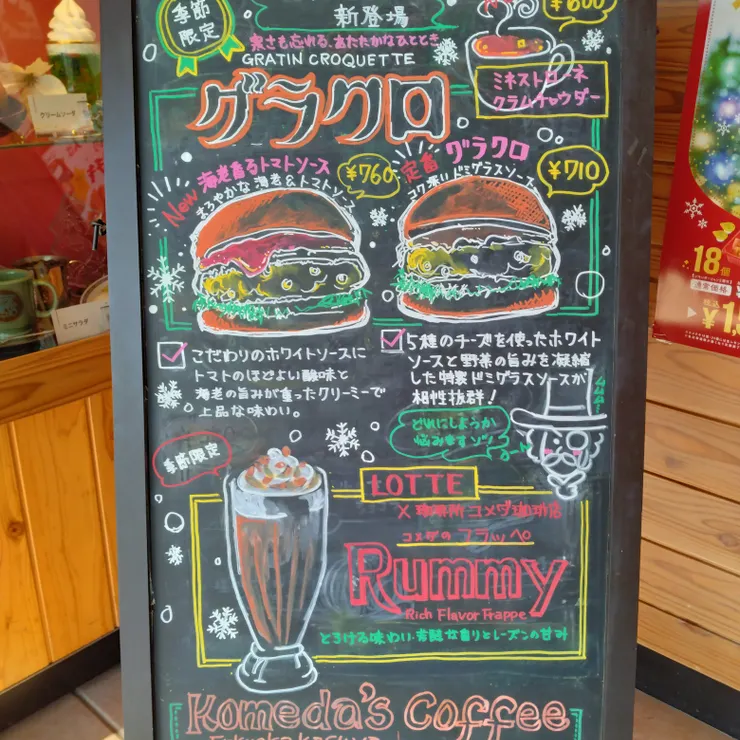 季節
限定
新登場
¥600
寒さも忘れる、あたたかなひととき
GRATIN CROQUETTE
グラクロ
ミネストローネ
クラムチャウダー
New 海老香るトマトソース
まろやかな海老&トマトソース
¥760
定番 グラクロ
コク深いドミグラスソース
¥710
こだわりのホワイトソースに
トマトのほどよい酸味と
海老の旨みが重なったクリーミーで
上品な味わい。
5種のチーズを使ったホワイト
ソースと野菜の旨みを凝縮
した特製ドミグラスソースが
相性抜群!
どれにしようか
悩みますゾ
季節限定
LOTTE
×珈琲所 コメダ珈琲店
コメダの フラッペ
Rummy
Rich Flavor Frappe
とろける味わい 芳醇な香りとレーズンの甘み
Komeda's Coffee
クリームソーダ
ミニサラダ
18個
通常価格